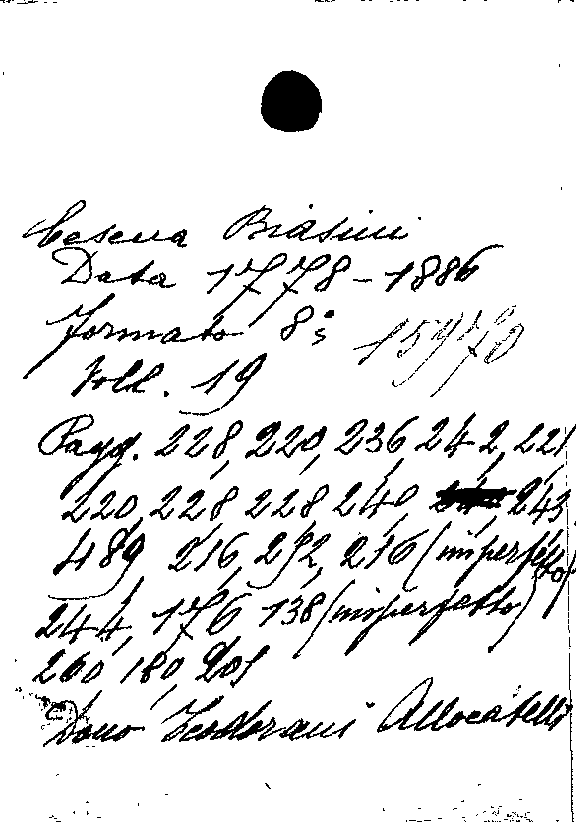 Cesena Biasini
Data 1778-1886
formato 8° 15970
Voll. 19
Pagg. 228, 220, 236 242, 221
220, 228 228 240, 243
489 216, 252, 216 (imperfetto)
244, 176 138 (imperfetto)
260, 180, 201
Dono Teodorani Allocatelli